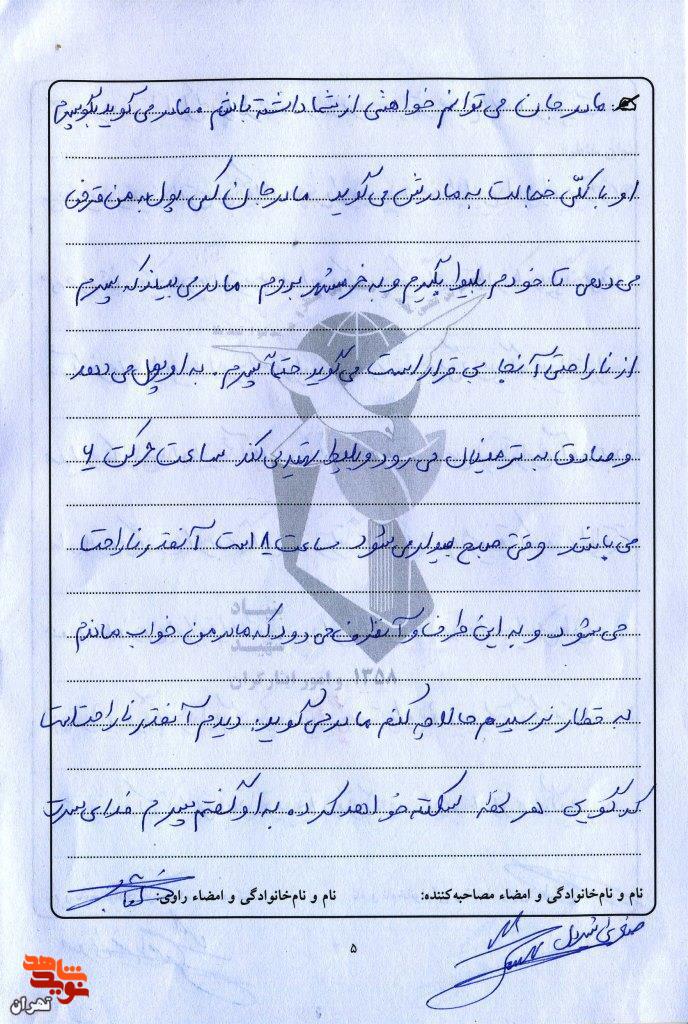 مادر جان می توانم خواهشی از شما داشته باشم. مادر می گوید بگو پسرم
او با کلّی خجالت به مادرش می گوید مادر جان کمی پول به من قرض
می دهی تا خودم بلیط بگیرم و به خرمشهر بروم مادر می بیند که پسرم
از ناراحتی آنجا بی قرار است می گوید حتماً پسرم. به او پول می دهد
و صادق به ترمینال می رود و بلیط تهیه می کند ساعت حرکت ۶
می باشد وقتی صبح بیدار می شود ساعت ۸ است آنقدر ناراحت
می شود و به این طرف و آنطرف می دود که مادر من خواب ماندم
به قطار نرسیدم حالا چه کنم مادر می گوید. دیدم آنقدر ناراحت است
که گویی هر لحظه سکته خواهد کرد. به او گفتم پسرم فدای سرت
بنیاد
شهید
و امور ایثارگران
۱۳۵۸
نام و نام‌خانوادگی و امضاء مصاحبه‌کننده:
نام و نام‌خانوادگی و امضاء راوی:
۵
نوید شاهد
تهران